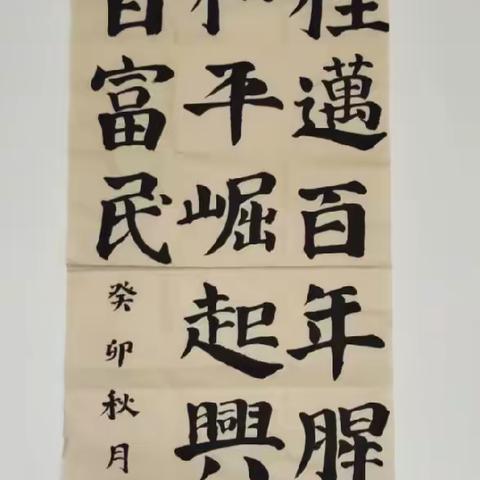 邁百年
和平崛起興
富民
癸卯秋月